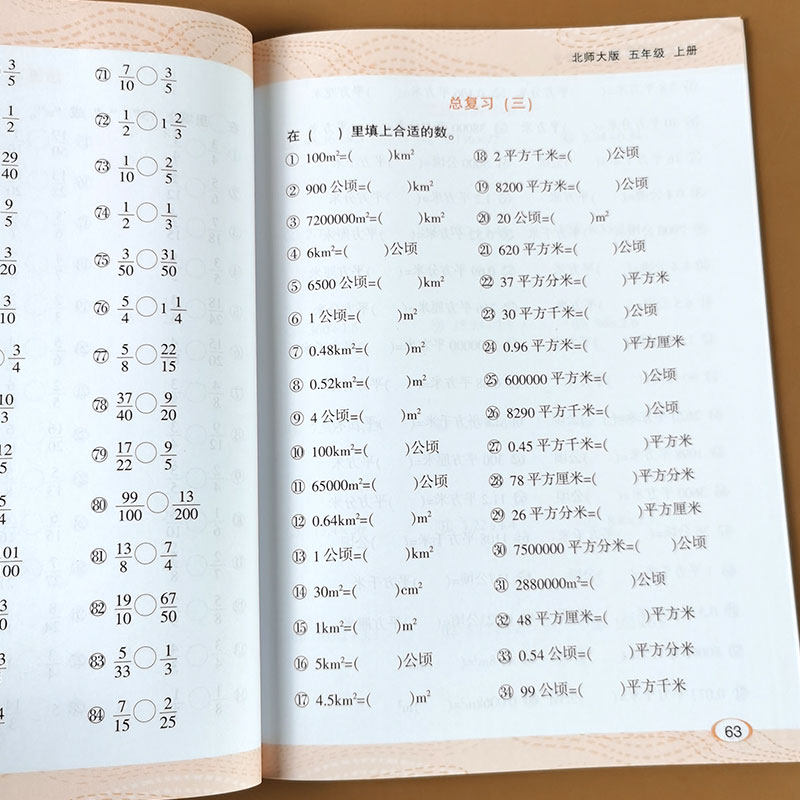 3/5
1/2
29/40
9/5
3/20
3/10
3/4
㉛ 7/10 ○ 3/5
72 1/2 ○ 1 2/3
73 1/10 ○ 2/5
74 1/2 ○ 1/3
75 3/50 ○ 31/50
76 5/4 ○ 1 1/4
77 5/8 ○ 22/15
78 37/40 ○ 9/20
79 17/22 ○ 9/5
80 99/100 ○ 13/200
81 13/8 ○ 7/4
82 19/10 ○ 67/50
83 5/33 ○ 1/3
84 7/15 ○ 2/25
北师大版 五年级 上册
总复习（三）
在（ ）里填上合适的数。
① 100m²=( )km²
② 900公顷=( )km²
③ 7200000m²=( )km²
④ 6km²=( )公顷
⑤ 6500公顷=( )km²
⑥ 1公顷=( )m²
⑦ 0.48km²=( )m²
⑧ 0.52km²=( )m²
⑨ 4公顷=( )m²
⑩ 100km²=( )公顷
⑪ 65000m²=( )公顷
⑫ 0.64km²=( )m²
⑬ 1公顷=( )km²
⑭ 30m²=( )cm²
⑮ 1km²=( )m²
⑯ 5km²=( )公顷
⑰ 4.5km²=( )m²
⑱ 2平方千米=( )公顷
⑲ 8200平方米=( )公顷
⑳ 20公顷=( )m²
㉑ 620平方米=( )公顷
㉒ 37平方分米=( )平方米
㉓ 30平方千米=( )公顷
㉔ 0.96平方米=( )平方厘米
㉕ 600000平方米=( )公顷
㉖ 8290平方千米=( )公顷
㉗ 0.45平方千米=( )平方米
㉘ 78平方厘米=( )平方分米
㉙ 26平方分米=( )平方厘米
㉚ 7500000平方分米=( )公顷
㉛ 2880000m²=( )公顷
㉜ 48平方厘米=( )平方米
㉝ 0.54公顷=( )平方分米
㉞ 99公顷=( )平方千米
63